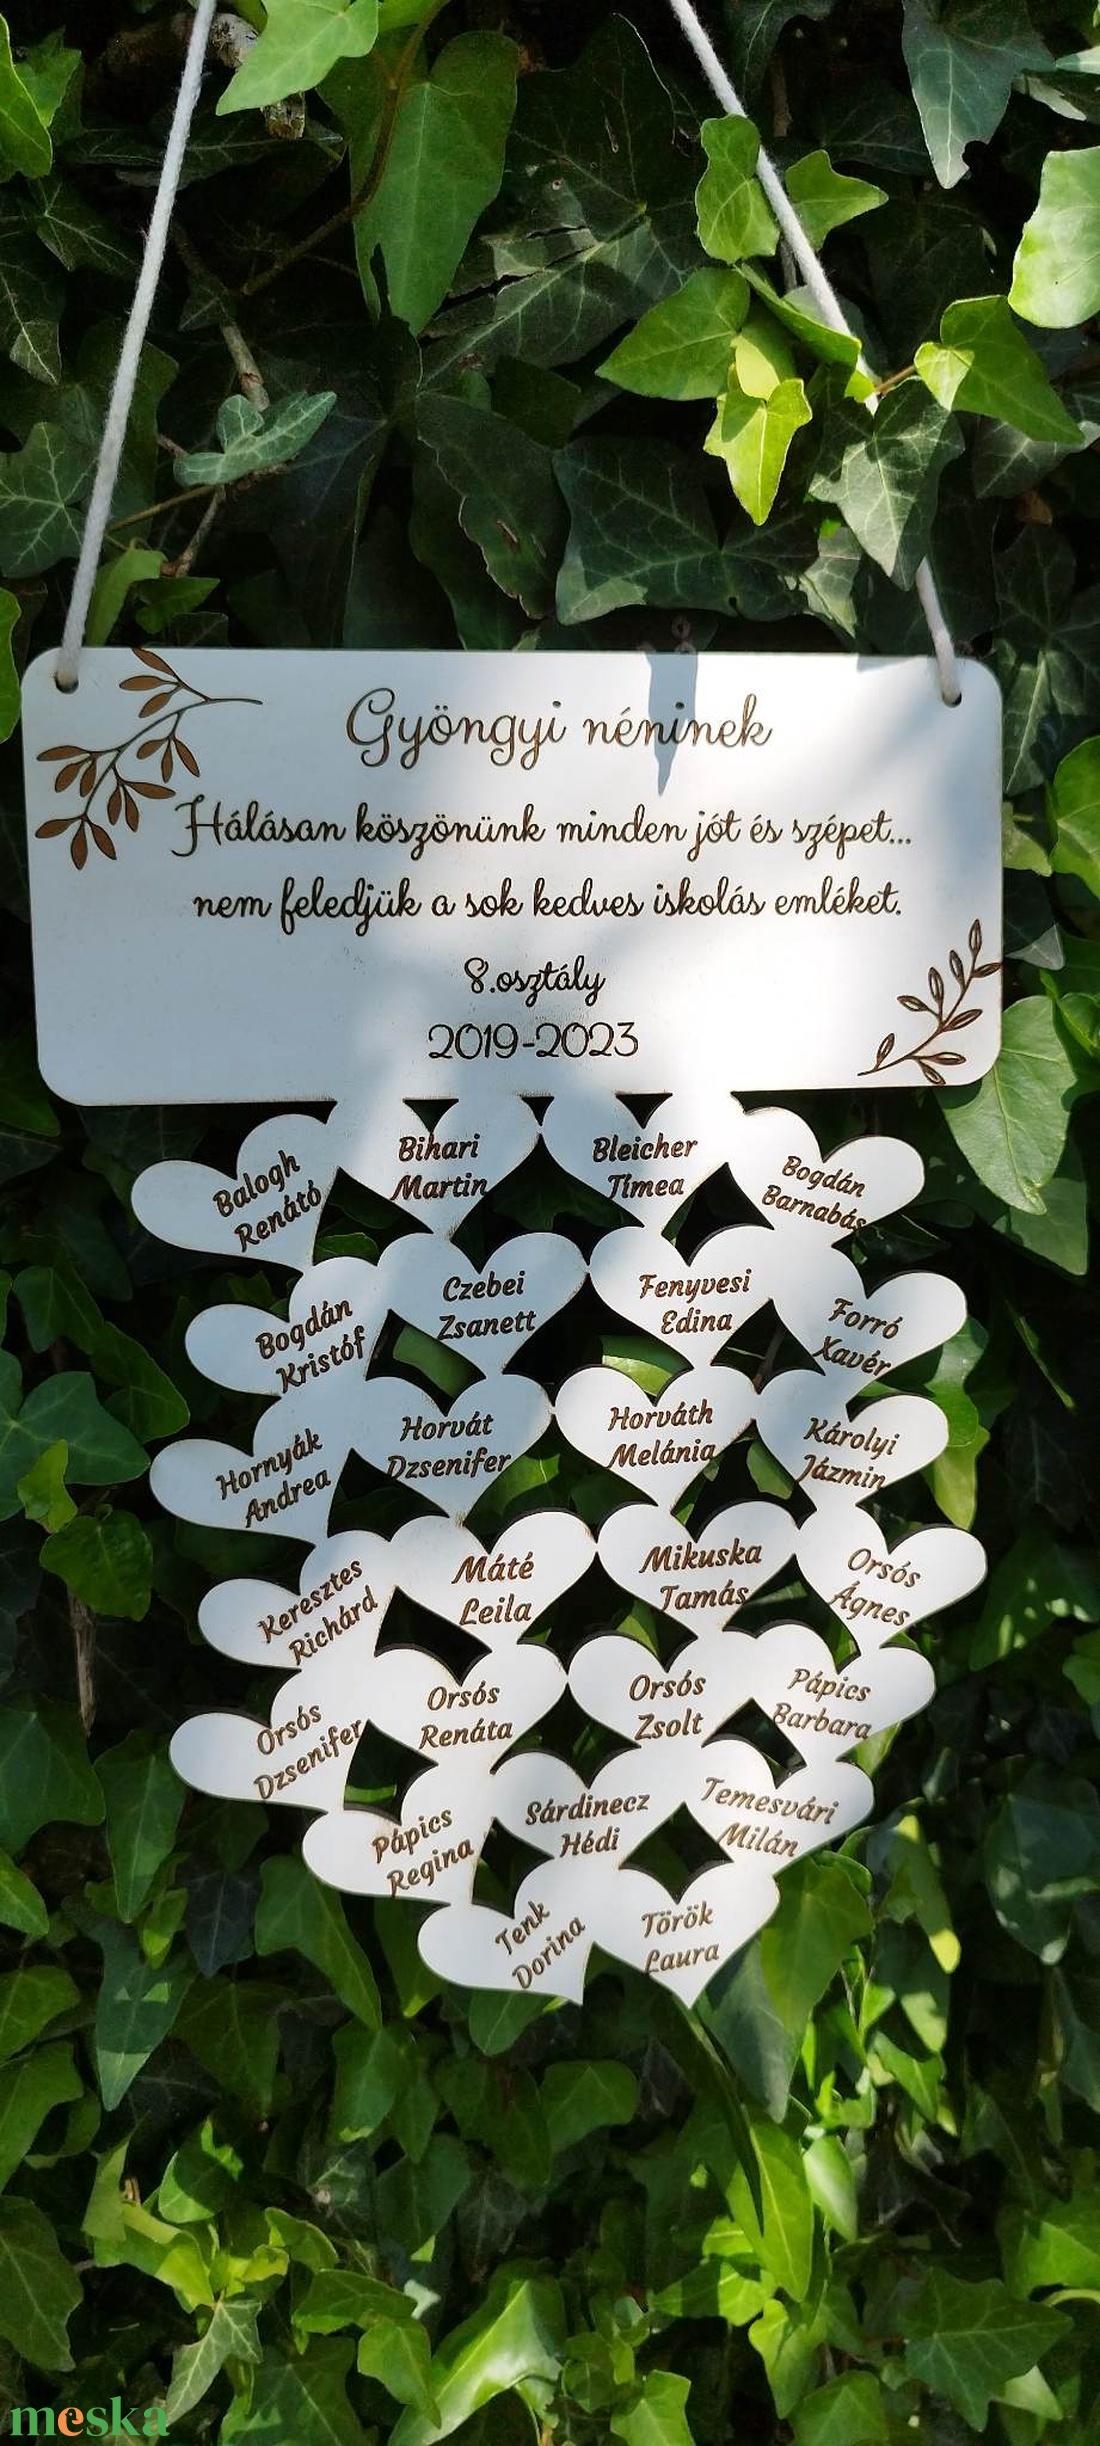 Gyöngyi néninek
Hálásan köszönünk minden jót és szépet...
nem feledjük a sok kedves iskolás emléket.
8.osztály
2019-2023
Balogh
Renátó
Bihari
Martin
Bleicher
Tímea
Bogdán
Barnabás
Bogdán
Kristóf
Czebei
Zsanett
Fenyvesi
Edina
Forró
Xavér
Hornyák
Andrea
Horvát
Dzsenifer
Horváth
Melánia
Károlyi
Jázmin
Keresztes
Richárd
Máté
Leila
Mikuska
Tamás
Orsós
Ágnes
Orsós
Dzsenifer
Orsós
Renáta
Orsós
Zsolt
Pápics
Barbara
Pápics
Regina
Sárdinecz
Hédi
Temesvári
Milán
Tenk
Dorina
Török
Laura
meska